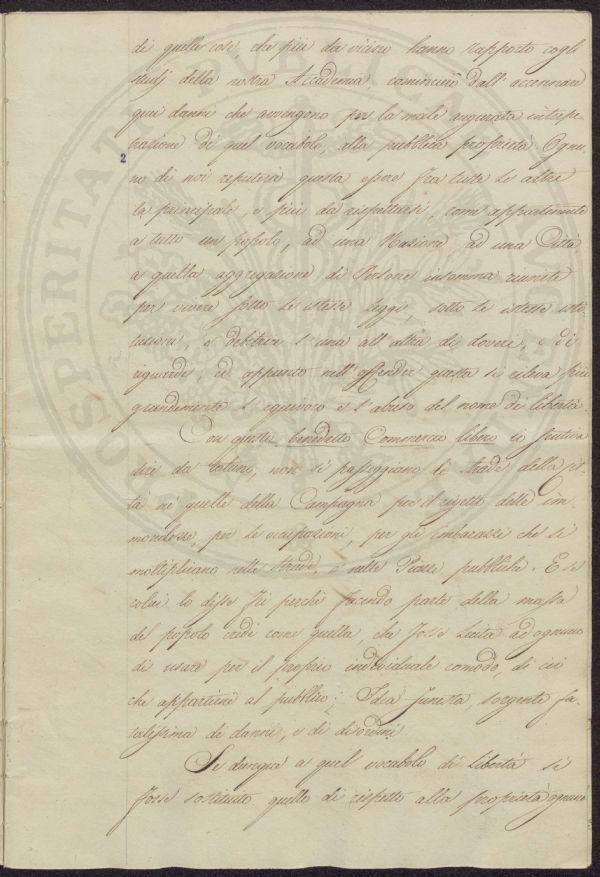 di quelle cose che più da vicino hanno rapporto cogli
studj della nostra Accademia comincierò dall'accennare
quei danni che avvengono per la male augurata interpe-
trazione di quel vocabolo, alla pubblica proprietà. Ognu-
2
no di noi reputerà questa essere fra tutte le altre
la principale, e più da rispettarsi, come appartenente
a tutto un popolo, ad una Nazione, ad una Città,
a quella aggregazione di Persone insomma riunite
per vivere sotto le istesse leggi, sotto le istesse isti-
tuzioni, e debitrici l'una all'altra di doveri, e di
riguardi, ed appunto nell'offender questa si rileva più
grandemente l'equivoco e l'abuso del nome di libertà.
Con questo benedetto Commercio libero io sentiva
dire da taluno, non si passeggiano le strade della cit-
tà né quelle della Campagna per il rigetto delle im-
mondezze, per le occupazioni, per gli imbarazzi che si
moltiplicano nelle strade, e nelle Piazze pubbliche. E se
colui lo disse fu perchè facendo parte della massa
del popolo credè come quella, che fosse lecito ad ognuno
di usare per il proprio individuale comodo, di ciò
che appartiene al pubblico; Idea funesta, sorgente fa-
talissima di danni, e di disordini.
Se dunque a quel vocabolo di libertà si
fosse sostituito quello di rispetto alla proprietà ognuno